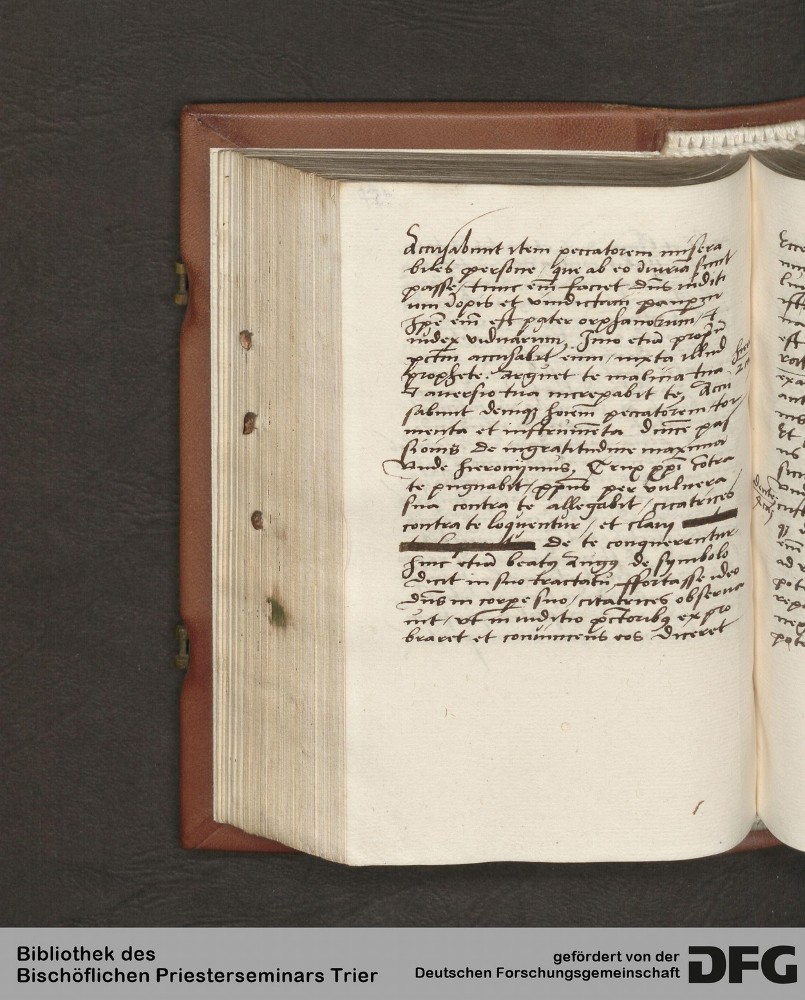 Accusabunt item peccatorem misera
biles persone, que ab eo iniuriam sunt
passe, tunc em̄ faciet dn̄s iudici
um inopis et vindictam pauperū
Ipse em̄ est pater orphanorum, et
iudex viduarum, Imo etiā propriū
pctm̄ accusabit eum, iuxta illud
prophete: Arguet te malitia tua
et auersio tua increpabit te, Accu
sabunt deniq hoiem̄ peccatorem tor
menta et instrumēta dn̄ice pas
sionis de ingratitudine maxima
Unde hieronymus, Crux xpī cōtra
te pugnabit, xpūs per vulnera
sua contra te allegabit, cicatrices
contra te loquentur, et claui
de te conquerentur
hinc etiā beatus Augus de symbolo
dicit in suo tractatu, ffortasse ideo
dn̄s in corpe suo, cicatrices obserua
uit, vt in iuditio pctoribus expro
braret et conuincens eos diceret
Bibliothek des
Bischöflichen Priesterseminars Trier
gefördert von der
Deutschen Forschungsgemeinschaft
DFG